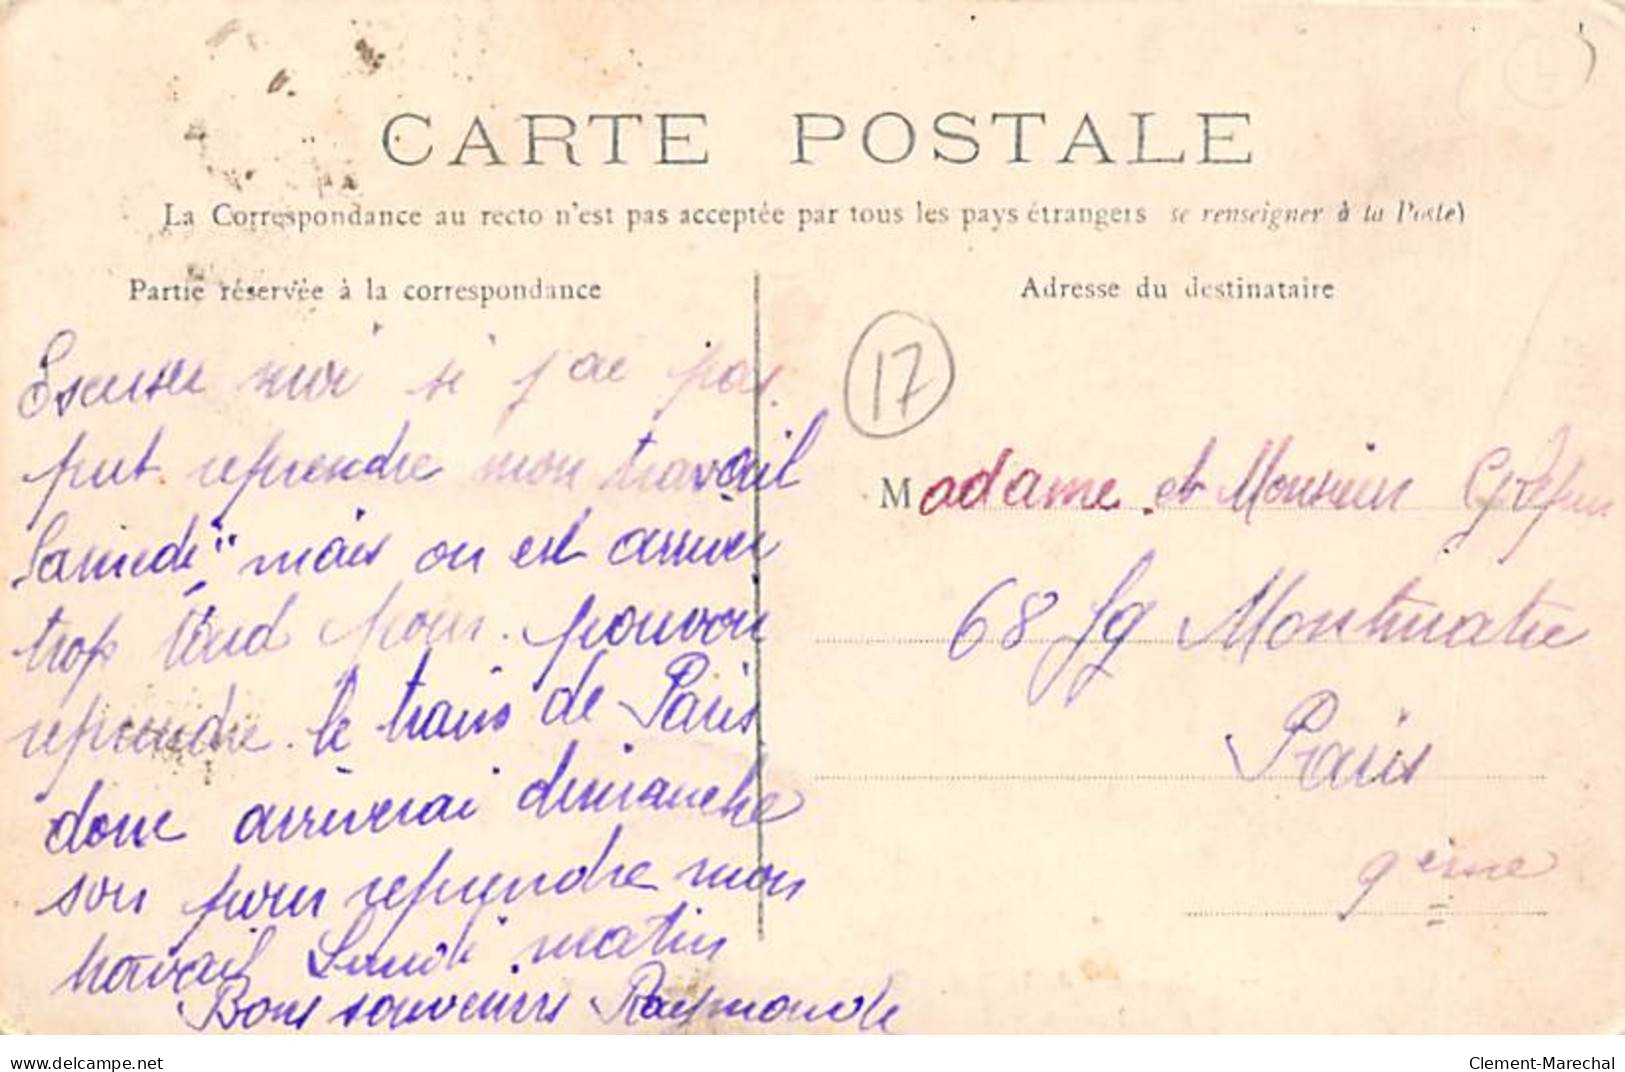 CARTE POSTALE
La Correspondance au recto n'est pas acceptée par tous les pays étrangers se renseigner à la Poste)
Partie réservée à la correspondance
Adresse du destinataire
Escuser moi si j'ai pas
put reprendre mon travail
Samedi" mais on est arriver
trop tard pour pouvoir
reprendre le train de Paris
donc arriverai dimanche
soir pour reprendre mon
travail Lundi matin
Bons souvenirs Raymonde
17
Madame et Monsieur
68 fg Montmatre
Paris
9eme
www.delcampe.net
Clement-Marechal